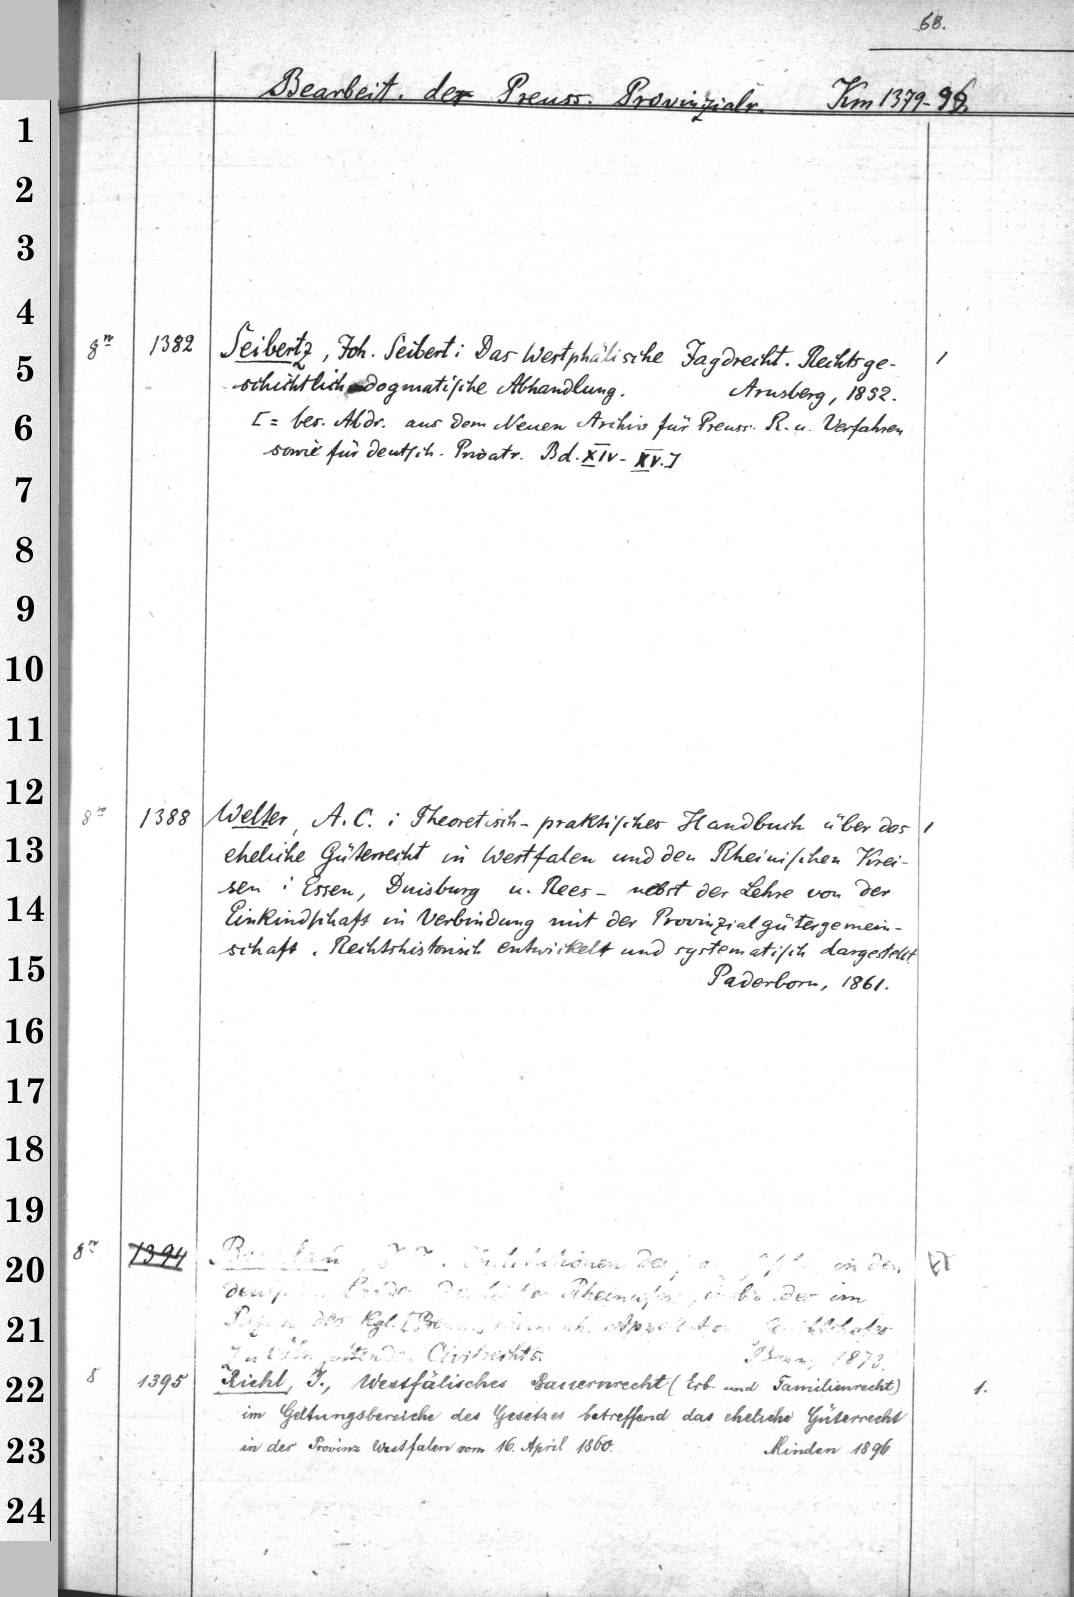 68.
Bearbeit. der Preuss. Provinzialr. Km 1379-96.
1
2
3
4
8º 1382 Seibertz, Joh. Seibert: Das Westphälische Jagdrecht. Rechtsge- 1
5
schichtlich-dogmatische Abhandlung. Arnsberg, 1852.
6
[= bes. Abdr. aus dem Neuen Archiv für Preuss. R. u. Verfahren
sowie für deutsch. Privatr. Bd. XIV - XV.]
7
8
9
10
11
12
8º 1388 Welter, A. C.: Theoretisch-praktisches Handbuch über das 1
13
eheliche Güterrecht in Westfalen und den Rheinischen Krei-
sen: Essen, Duisburg u. Rees - nebst der Lehre von der
14
Einkindschaft in Verbindung mit der Provinzialgütergemein-
schaft. Rechtshistorisch entwickelt und systematisch dargestellt.
15
Paderborn, 1861.
16
17
18
19
8º 1394 Institutionen des in den
20
der Rheinufer im
21
des Kgl. Appellat
Civilrechts. Bonn, 1873.
22
8 1395 Riehl, J., Westfälisches Bauernrecht (Erb- und Familienrecht) 1.
im Geltungsbereiche des Gesetzes betreffend das eheliche Güterrecht
23
in der Provinz Westfalen vom 16. April 1860. Minden 1896
24